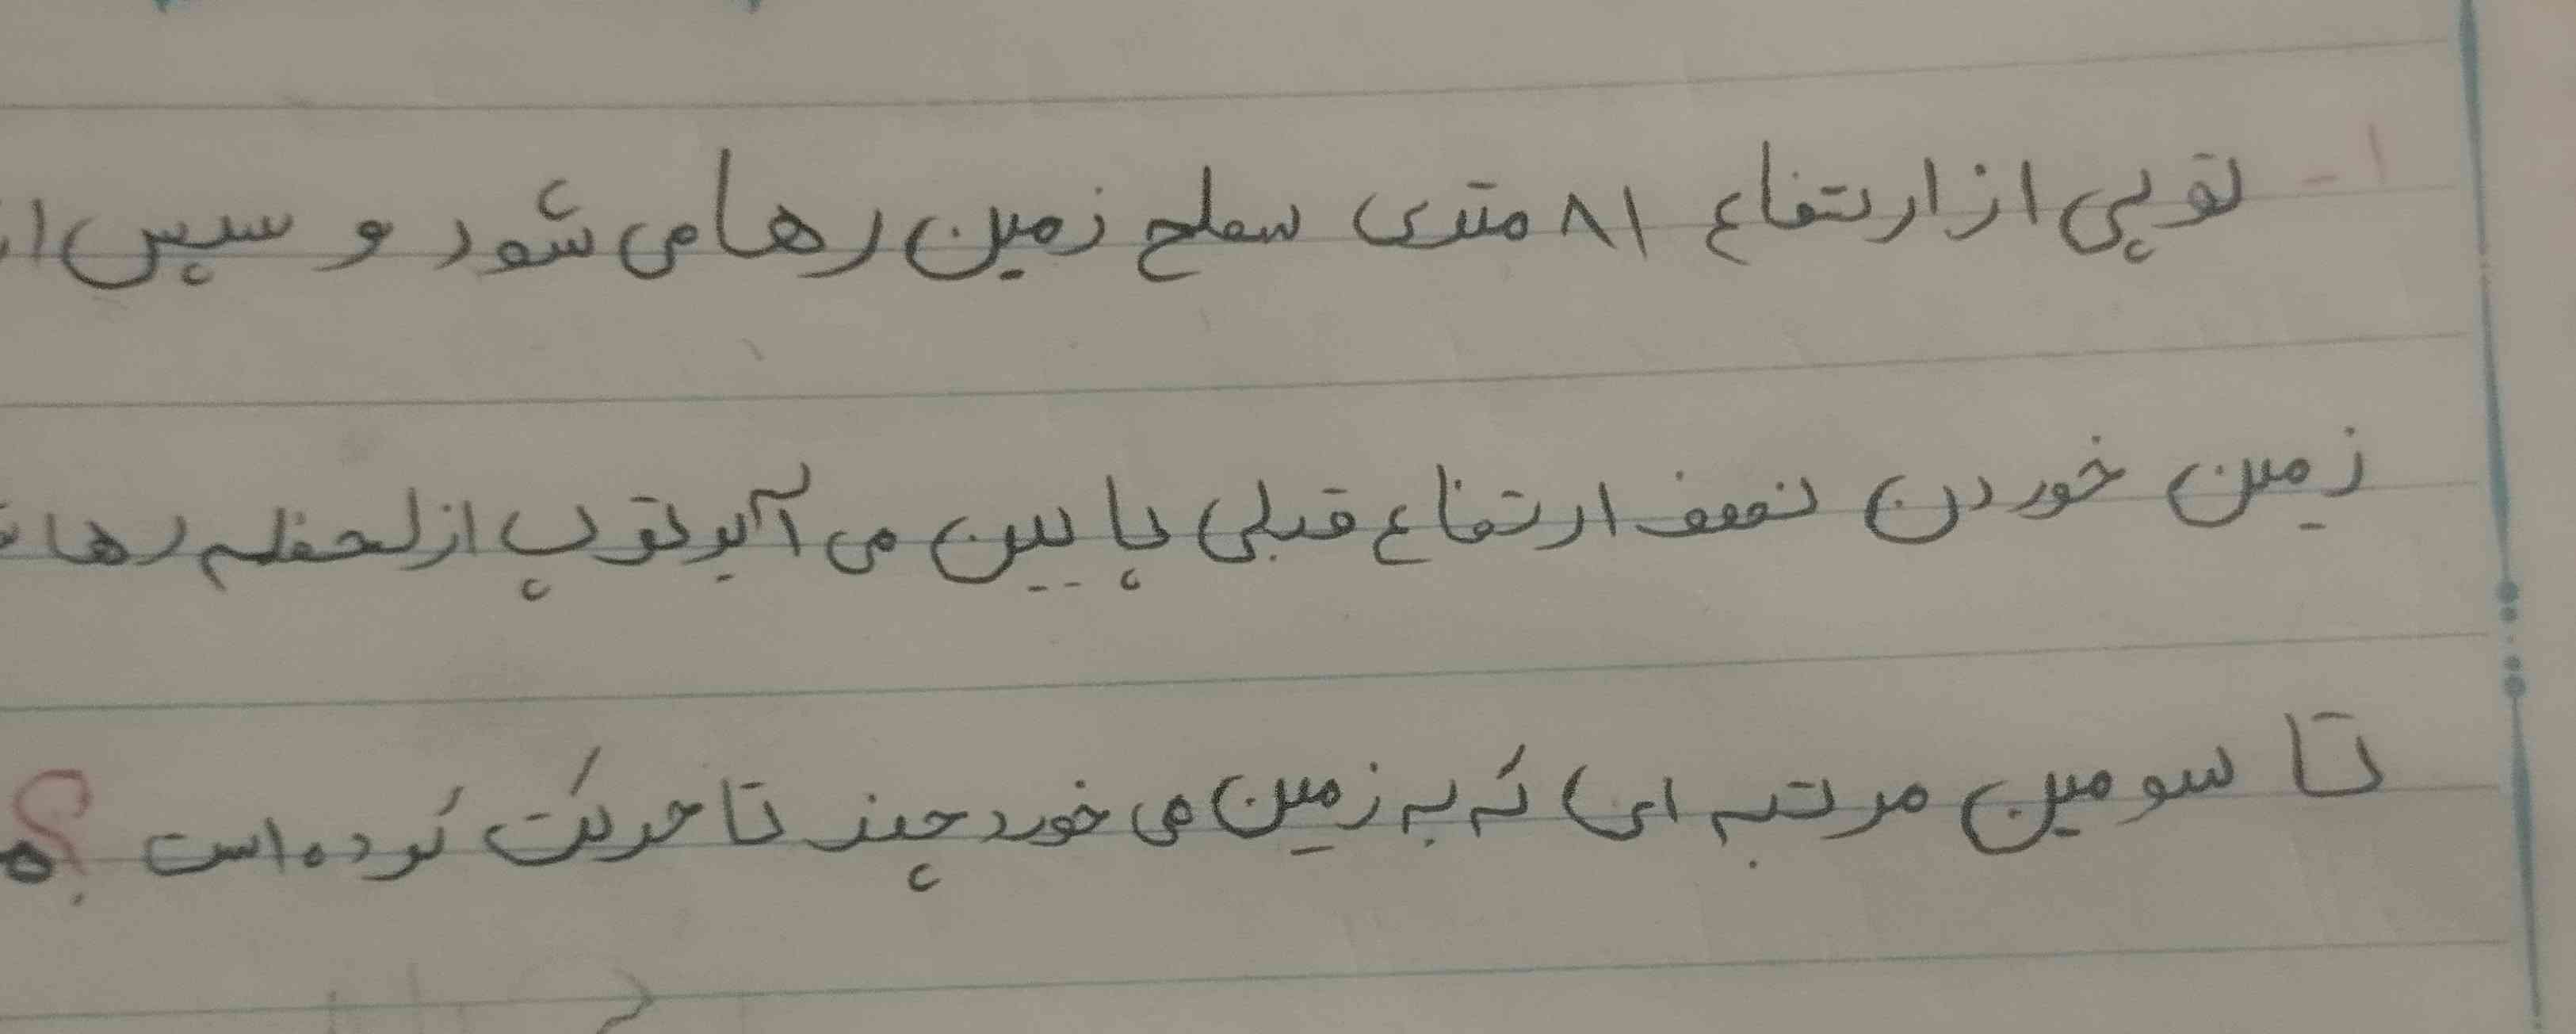 ۱- توپی از ارتفاع ۸۱ متری سطح زمین رها می شود و سپس از
زمین خوردن نصف ارتفاع قبلی پایین می آید توپ از لحظه رها
تا سومین مرتبه ای که به زمین می خورد چند تا حرکت کرده است ؟